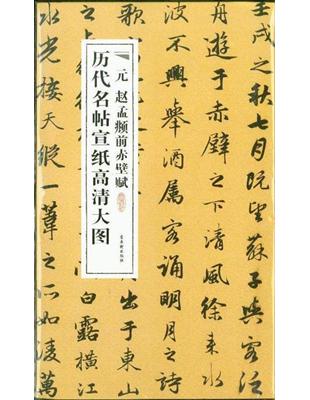 壬戌之秋七月既望蘇子與客泛
舟遊于赤壁之下清風徐来水
波不興舉酒屬客誦明月之詩
出于東山
白露橫江
水光接天縱一葦之所如凌萬
元 赵孟頫前赤壁赋
历代名帖宣纸高清大图
古吴轩出版社